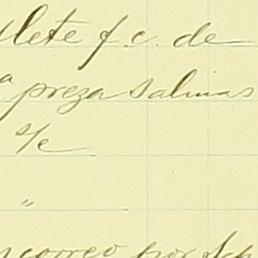 flete f. c. de
ª preza salinas
s/c
"
correo por